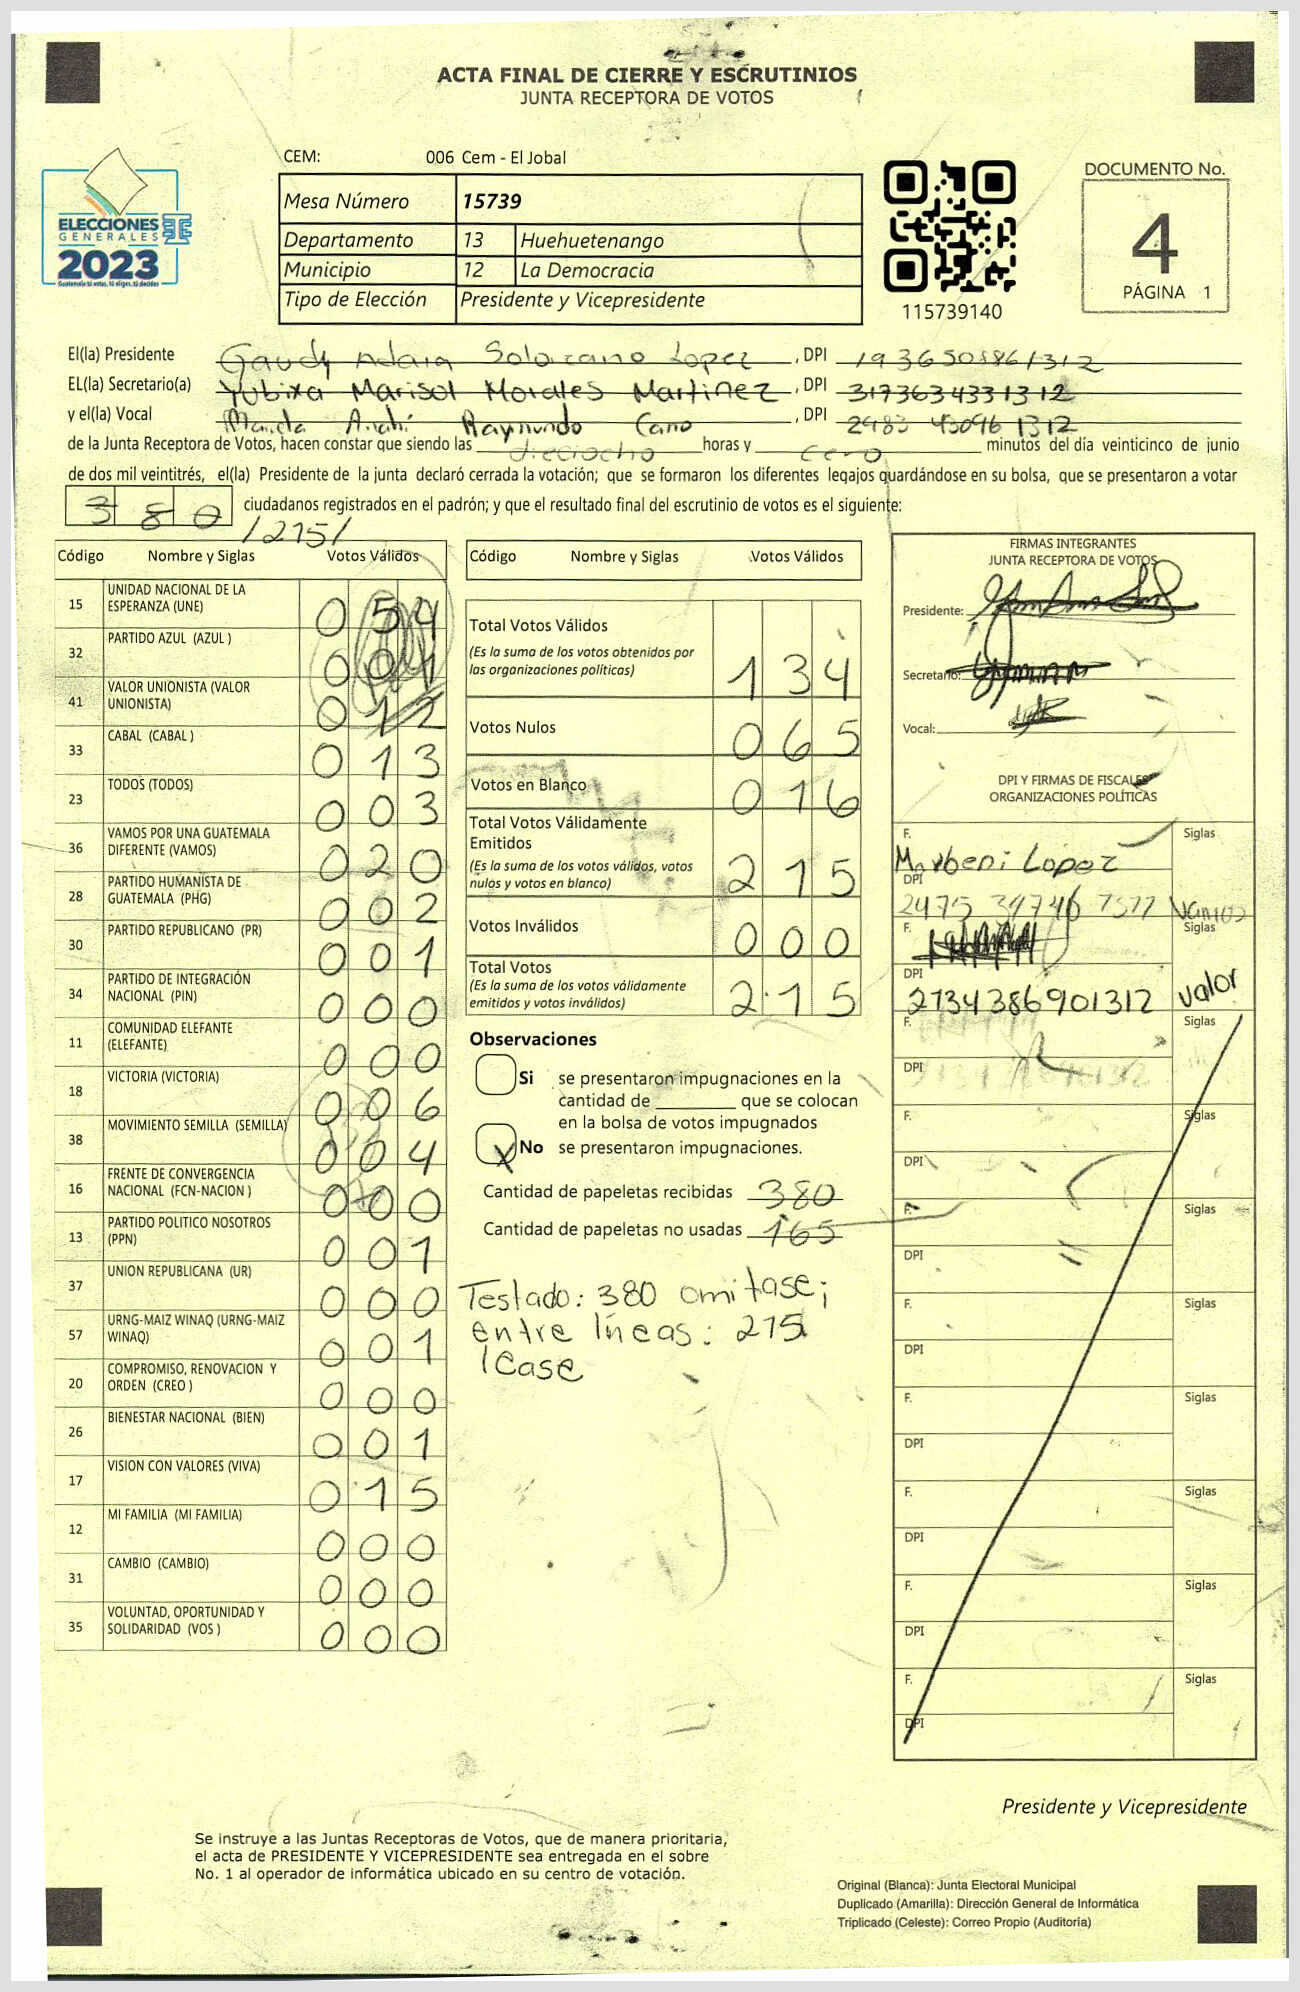 ACTA FINAL DE CIERRE Y ESCRUTINIOS
JUNTA RECEPTORA DE VOTOS
CEM: 006 Cem - El Jobal
ELECCIONES
GENERALES
2023
Guatemala tú votas, tú eliges, tú decides
Mesa Número 15739
Departamento 13 Huehuetenango
Municipio 12 La Democracia
Tipo de Elección Presidente y Vicepresidente
115739140
DOCUMENTO No.
4
PÁGINA 1
El(la) Presidente Gaudy Adaia Solorzano Lopez, DPI
EL(la) Secretario(a) Yubixa Marisol Morales Martinez, DPI 3173634331312
y el(la) Vocal Anahí Raymundo Cano, DPI 2983 43096 1312
de la Junta Receptora de Votos, hacen constar que siendo las dieciocho horas y cero minutos del día veinticinco de junio
de dos mil veintitrés, el(la) Presidente de la junta declaró cerrada la votación; que se formaron los diferentes legajos quardándose en su bolsa, que se presentaron a votar
380 ciudadanos registrados en el padrón; y que el resultado final del escrutinio de votos es el siguiente:
/215/
Código Nombre y Siglas Votos Válidos
15 UNIDAD NACIONAL DE LA ESPERANZA (UNE) 054
32 PARTIDO AZUL (AZUL ) 001
41 VALOR UNIONISTA (VALOR UNIONISTA) 012
33 CABAL (CABAL ) 013
23 TODOS (TODOS) 003
36 VAMOS POR UNA GUATEMALA DIFERENTE (VAMOS) 020
28 PARTIDO HUMANISTA DE GUATEMALA (PHG) 002
30 PARTIDO REPUBLICANO (PR) 001
34 PARTIDO DE INTEGRACIÓN NACIONAL (PIN) 000
11 COMUNIDAD ELEFANTE (ELEFANTE) 000
18 VICTORIA (VICTORIA) 006
38 MOVIMIENTO SEMILLA (SEMILLA) 004
16 FRENTE DE CONVERGENCIA NACIONAL (FCN-NACION ) 000
13 PARTIDO POLITICO NOSOTROS (PPN) 001
37 UNION REPUBLICANA (UR) 000
57 URNG-MAIZ WINAQ (URNG-MAIZ WINAQ) 001
20 COMPROMISO, RENOVACION Y ORDEN (CREO ) 000
26 BIENESTAR NACIONAL (BIEN) 001
17 VISION CON VALORES (VIVA) 015
12 MI FAMILIA (MI FAMILIA) 000
31 CAMBIO (CAMBIO) 000
35 VOLUNTAD, OPORTUNIDAD Y SOLIDARIDAD (VOS ) 000
Código Nombre y Siglas Votos Válidos
Total Votos Válidos 134
(Es la suma de los votos obtenidos por
las organizaciones políticas)
Votos Nulos 065
Votos en Blanco 016
Total Votos Válidamente
Emitidos 215
(Es la suma de los votos válidos, votos
nulos y votos en blanco)
Votos Inválidos 000
Total Votos 215
(Es la suma de los votos válidamente
emitidos y votos inválidos)
Observaciones
Si se presentaron impugnaciones en la
cantidad de ________ que se colocan
en la bolsa de votos impugnados
X No se presentaron impugnaciones.
Cantidad de papeletas recibidas 380
Cantidad de papeletas no usadas 165
Testado: 380 omitase;
entre líneas: 215
lease
FIRMAS INTEGRANTES
JUNTA RECEPTORA DE VOTOS
Presidente:
Secretario:
Vocal:
DPI Y FIRMAS DE FISCALES
ORGANIZACIONES POLÍTICAS
F. Siglas
Marbeni Lopez
DPI
2475 34746 Vamos
F. Siglas
DPI
2734386901312 valor
F. Siglas
DPI
F. Siglas
DPI
F. Siglas
DPI
F. Siglas
DPI
F. Siglas
DPI
F. Siglas
DPI
F. Siglas
DPI
F. Siglas
DPI
Presidente y Vicepresidente
Se instruye a las Juntas Receptoras de Votos, que de manera prioritaria,
el acta de PRESIDENTE Y VICEPRESIDENTE sea entregada en el sobre
No. 1 al operador de informática ubicado en su centro de votación.
Original (Blanca): Junta Electoral Municipal
Duplicado (Amarilla): Dirección General de Informática
Triplicado (Celeste): Correo Propio (Auditoría)